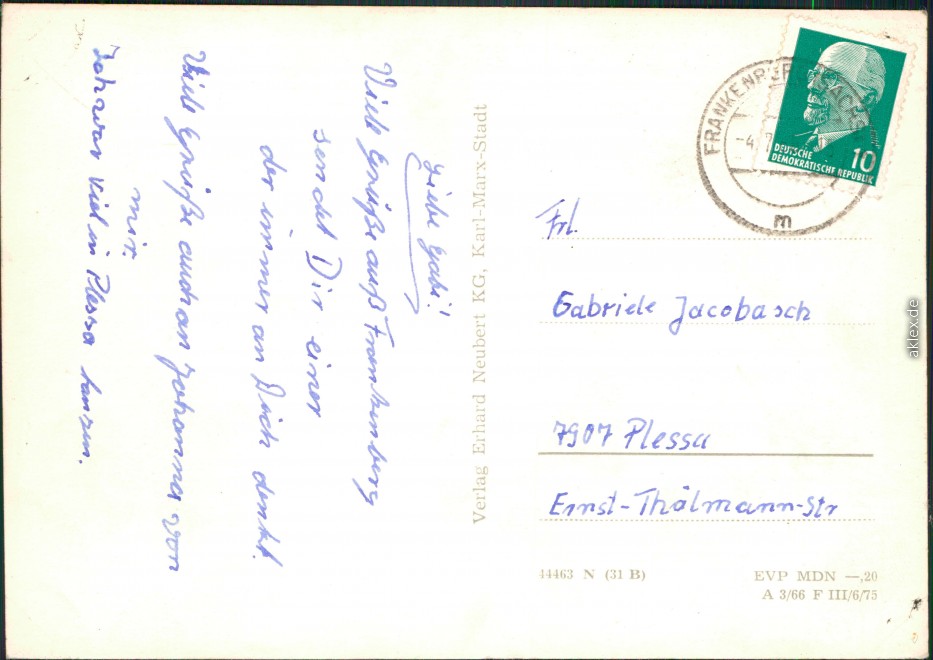 Liebe Gabi!
Viele Grüße auß Frankenberg
sendet Dir einer
der immer an Dich denkt.
Viele Grüße auch an Johannes von
mir.
Ich war viel in Plessa tanzen.
Verlag Erhard Neubert KG, Karl-Marx-Stadt
FRANKENBERG
-4.
m
DEUTSCHE
DEMOKRATISCHE REPUBLIK
10
Frl.
Gabriele Jacobasch
7907 Plessa
Ernst-Thälmann-Str
44463 N (31 B)
EVP MDN —,20
A 3/66 F III/6/75
aklex.de